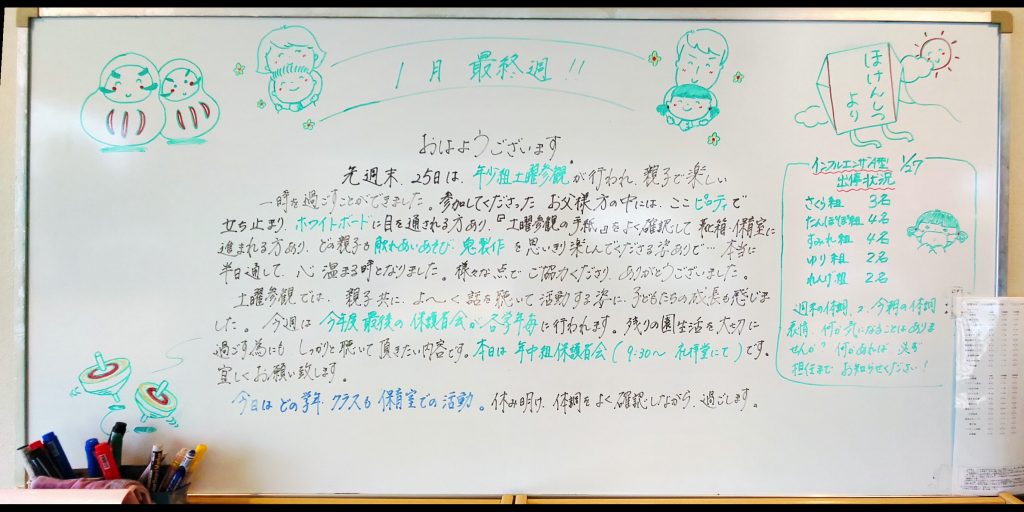 1月 最終週!!
おはようございます。
先週末、25日は、年少組土曜参観が行われ、親子で楽しい
一時を過ごすことができました。参加してくださった お父様方の中には、ここ ピロティで
立ち止まり、ホワイトボードに目を通される方あり、『土曜参観の手紙』をよく確認して 靴箱・保育室に
進まれる方あり、どの親子も 触れあいあそび・製作 を思いきり楽しんでくださる姿ありで… 本当に
半日通して、心温まる時となりました。様々な点で ご協力くださり、ありがとうございました。
土曜参観では、親子共に、よ〜く話を聴いて活動する姿に、子どもたちの成長も感じま
した。今週は 今年度最後の保護者会が各学年毎に行われます。残りの園生活を大切に
過ごす為にも しっかりと聴いて頂きたい内容です。本日は 年中組保護者会(9:30〜 礼拝堂にて)です。
宜しくお願い致します。
今日は どの学年、クラスも 保育室での活動。休み明け、体調をよく確認しながら、過ごします。
ほけんしつ
より
インフルエンザA型 1/27
出停状況
さくら組 3名
たんぽぽ組 4名
すみれ組 4名
ゆり組 2名
れんげ組 2名
週末の体調、今朝の体調
表情、何か気になることはありま
せんか? 何かあれば、必ず
担任まで お知らせください!